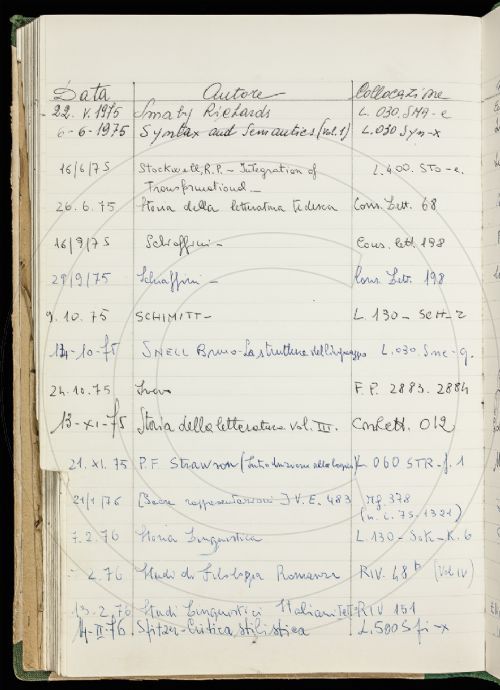 Data Autore Collocazione
22. V. 1975 Smaby Richards L. 030. SMA-e
6-6-1975 Syntax and Semantics (vol. 1) L. 030 Syn-x
16/6/75 Stockwell, R.P. - Integration of L. 400. STO-e.
Transformational -
26. 6. 75 Storia della letteratura tedesca Cons. Lett. 68
16/9/75 Schiaffini - Cons. Lett. 198
29/9/75 Schiaffini - Cons. Lett. 198
9. 10. 75 SCHMITT - L. 130 - SCH-z
14-10-75 SNELL Bruno - La struttura del linguaggio L. 030. Sne-g.
24. 10. 75 F. P. 2883. 2884
13-XI-75 Storia della letteratura vol. III. Cons Lett. 012
21. XI. 75 P.F. Strawson (Introduzione alla logica) L 060 STR-f. 1
21/1/76 V. E. 483 Mg. 378
(n. i. 75-1321)
7. 2. 76 Storia Linguistica L. 130 - SoK-K. 6
2. 76 Studi di Filologia Romanza RIV. 48 b (Vol IV)
13. 2. 76 Studi Linguistici Italiani RIV 151
14-II-76. Spitzer-Critica stilistica L. 500 Spi-x